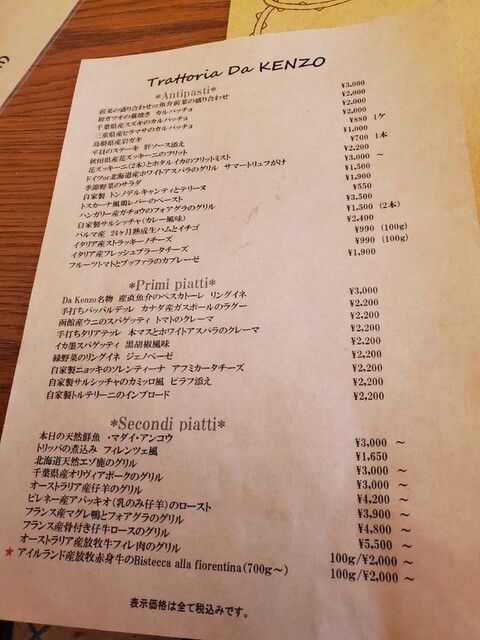 Trattoria Da KENZO
*Antipasti*
前菜の盛り合わせor魚介前菜の盛り合わせ ¥3,000
初ガツオの藁焼き カルパッチョ ¥2,000
千葉県産スズキのカルパッチョ ¥2,000
三重県産ヒラマサのカルパッチョ ¥2,000
島根県産岩ガキ ¥880 1ケ
平貝のステーキ 肝ソース添え ¥1,000
秋田県産花ズッキーニのフリット ¥700 1本
花ズッキーニ(2本)とホタルイカのフリットミスト ¥2,200
ドイツor北海道産ホワイトアスパラのグリル サマートリュフがけ ¥3,000 ～
季節野菜のサラダ ¥1,500
自家製 トンノデルキャンティとテリーヌ ¥1,900
トスカーナ風鶏レバーのペースト ¥550
ハンガリー産ガチョウのフォアグラのグリル ¥3,500
自家製サルシッチャ(カレー風味) ¥1,500 (2本)
パルマ産 24ヶ月熟成生ハムとイチゴ ¥2,400
イタリア産ストラッキーノチーズ ¥990 (100g)
イタリア産フレッシュブラータチーズ ¥990 (100g)
フルーツトマトとブッファラのカプレーゼ ¥1,900
*Primi piatti*
Da Kenzo名物 産直魚介のペスカトーレ リングイネ ¥3,000
手打ちパッパルデッレ カナダ産ガスポールのラグー ¥2,200
函館産ウニのスパゲッティ トマトのクレーマ ¥2,200
手打ちタリアテッレ 本マスとホワイトアスパラのクレーマ ¥2,200
イカ墨スパゲッティ 黒胡椒風味 ¥2,200
緑野菜のリングイネ ジェノベーゼ ¥2,200
自家製ニョッキのソレンティーナ アフミカータチーズ ¥2,200
自家製サルシッチャのカミッロ風 ピラフ添え ¥2,200
自家製トルテリーニのインブロード ¥2,200
*Secondi piatti*
本日の天然鮮魚 ・マダイ・アンコウ ¥3,000 ～
トリッパの煮込み フィレンツェ風 ¥1,650
北海道天然エゾ鹿のグリル ¥3,000 ～
千葉県産オリヴィアポークのグリル ¥3,000 ～
オーストラリア産仔羊のグリル ¥4,200 ～
ピレネー産アバッキオ(乳のみ仔羊)のロースト ¥3,900 ～
フランス産マグレ鴨とフォアグラのグリル ¥4,800 ～
フランス産骨付き仔牛ロースのグリル ¥5,500 ～
オーストラリア産放牧牛フィレ肉のグリル 100g/¥2,000 ～
★アイルランド産放牧赤身牛のBistecca alla fiorentina(700g～) 100g/¥2,000 ～
表示価格は全て税込みです。